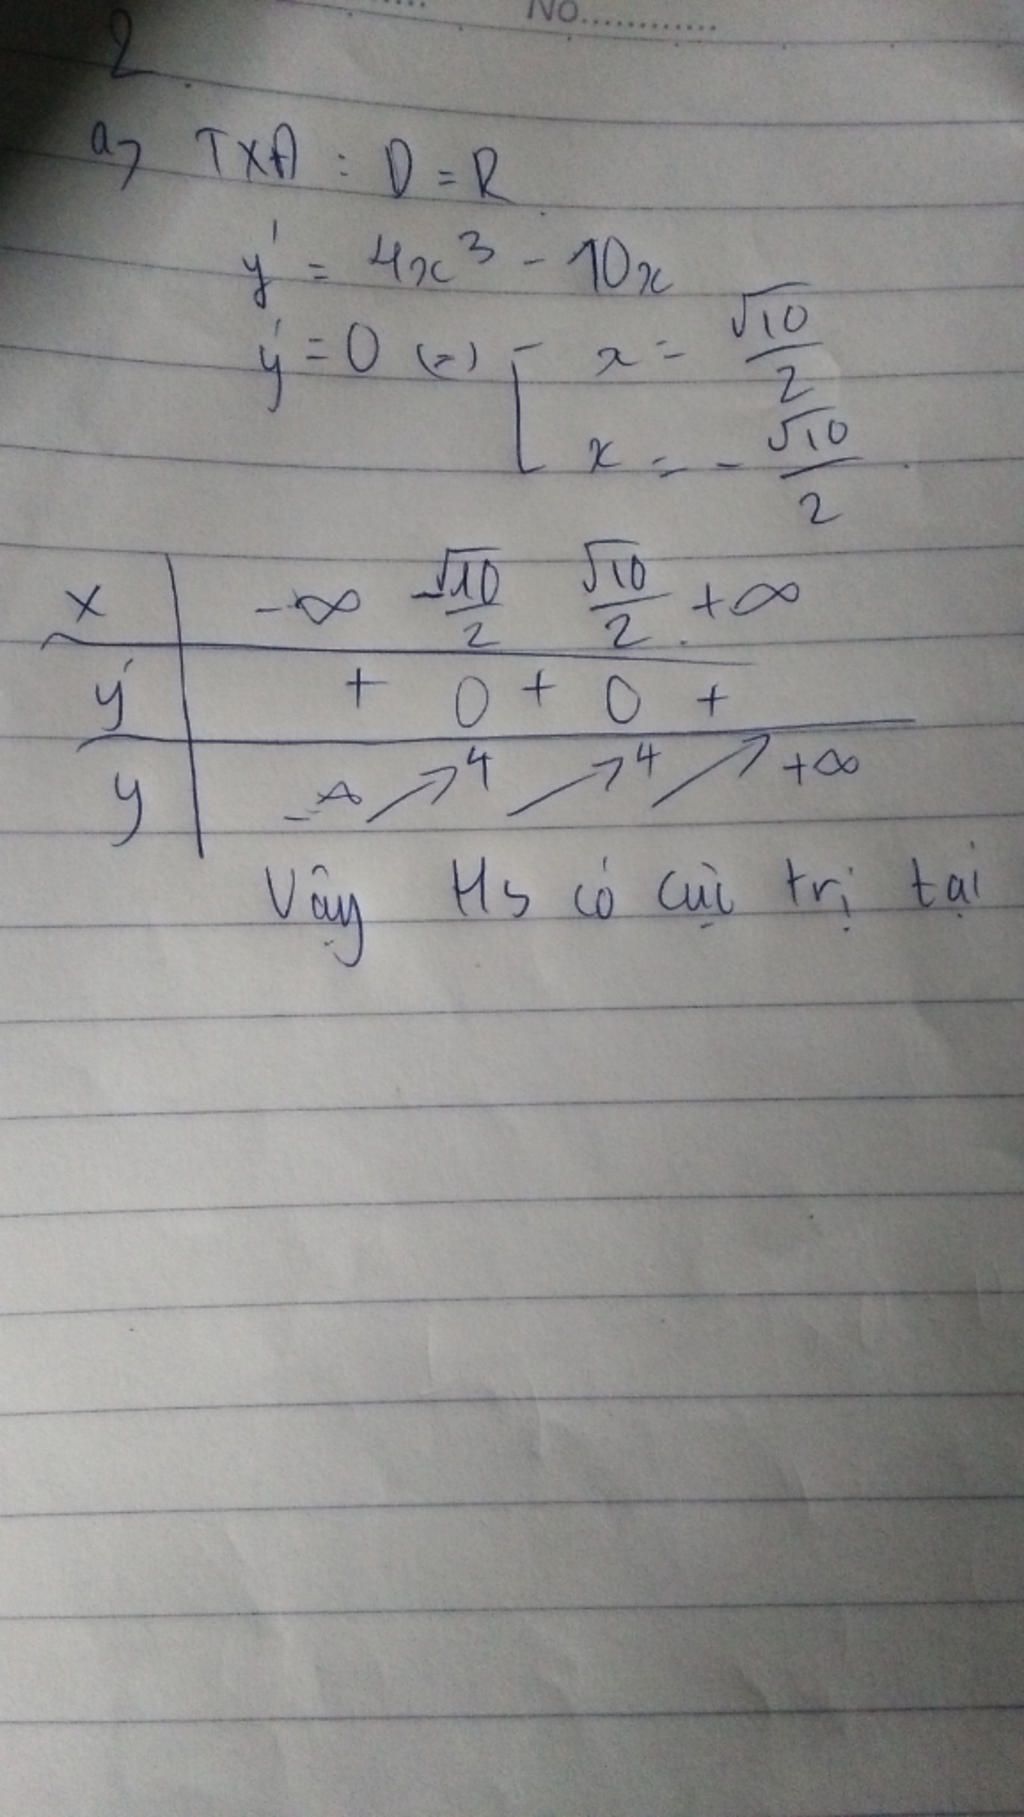 No............
2
a) TXĐ : D = R
y' = 4x³ - 10x
y' = 0 (=) [ x = √10/2
x = - √10/2
x | -∞ -√10/2 √10/2 +∞
y' | + 0 + 0 +
y | -∞ ↗ 4 ↗ 4 ↗ +∞
Vậy Hs có cực trị tại